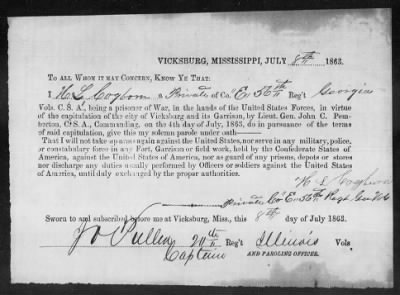 VICKSBURG, MISSISSIPPI, JULY 8th 1863.
TO ALL WHOM IT MAY CONCERN, KNOW YE THAT:
I H L Cogborn a Private of Co. E 56th Reg't Georgia
Vols. C. S. A., being a prisoner of War, in the hands of the United States Forces, in virtue
of the capitulation of the city of Vicksburg and its Garrison, by Lieut. Gen. John C. Pem-
berton, C. S. A., Commanding, on the 4th day of July, 1863, do in pursuance of the terms
of said capitulation, give this my solemn parole under oath——
That I will not take up arms again against the United States, nor serve in any military, police,
or constabulary force in any Fort, Garrison or field work, held by the Confederate States of
America, against the United States of America, nor as guard of any prisons, depots or stores
nor discharge any duties usually performed by Officers or soldiers against the United States
of America, until duly exchanged by the proper authorities.
H L Cogborn
Private Co E 56th Regt Geo Vols
Sworn to and subscribed before me at Vicksburg, Miss., this 8th day of July 1863.
Jo Pullen 20th Reg't Illinois Vols
Captain AND PAROLING OFFICER.